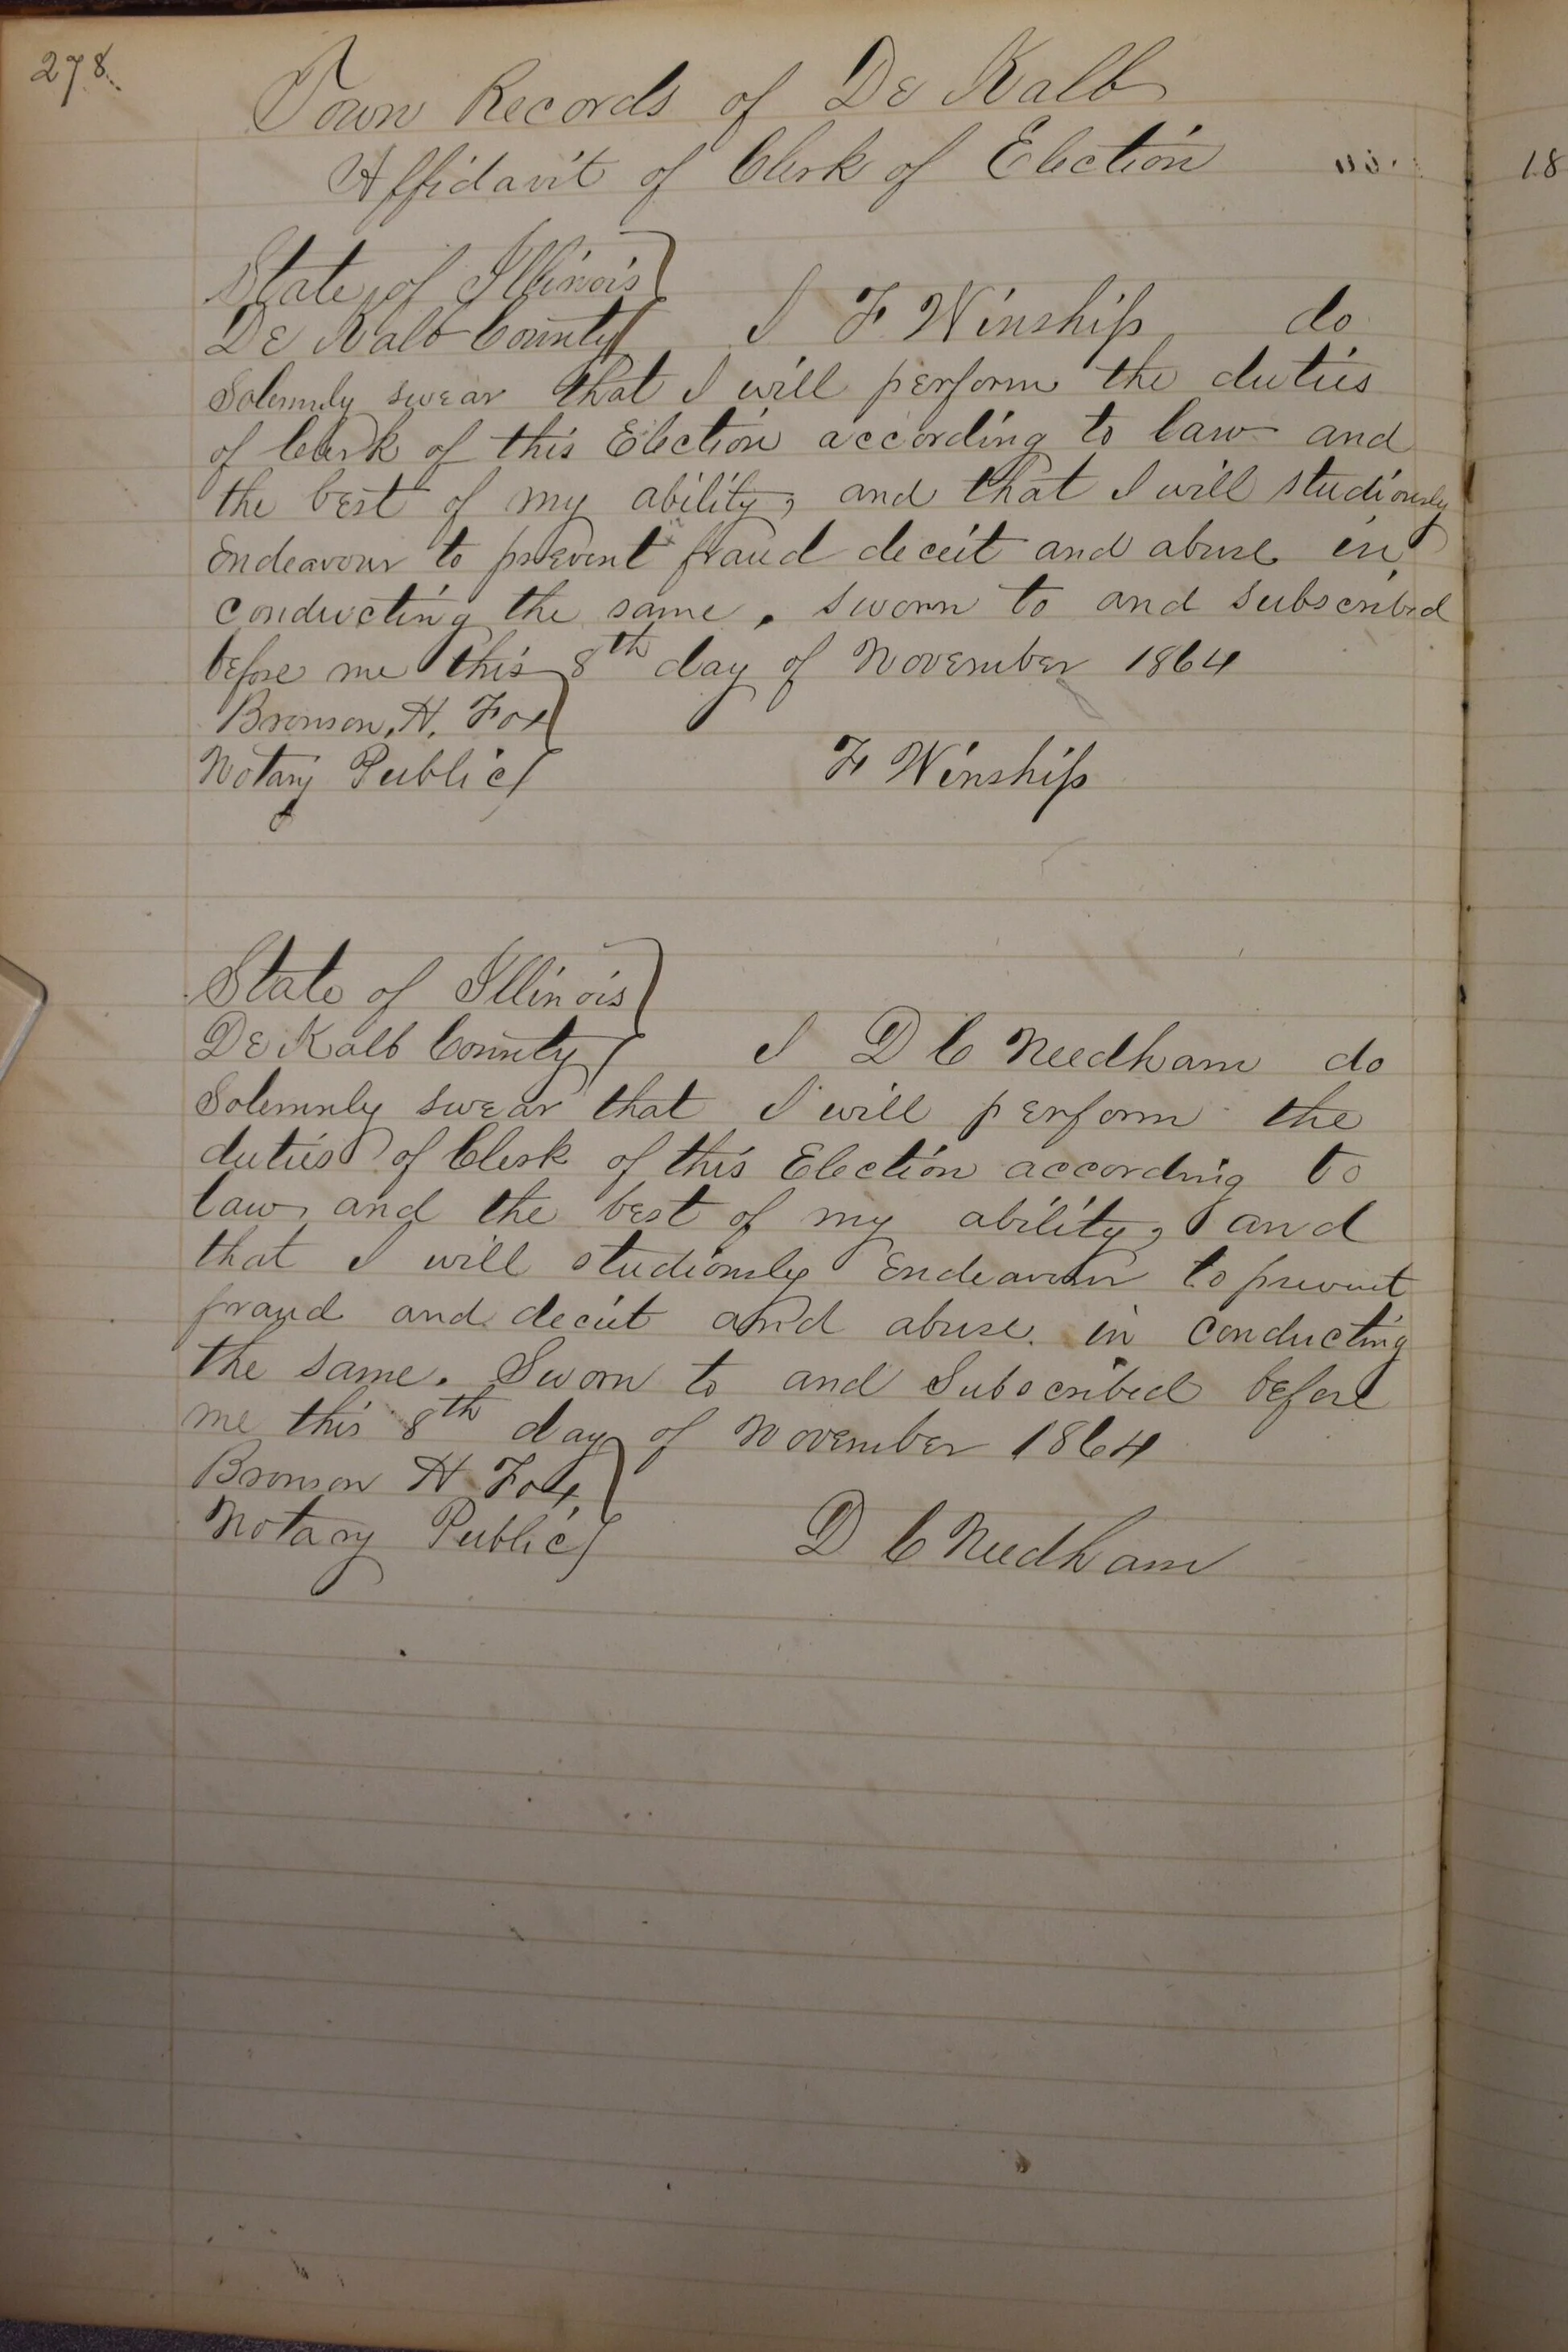 278.
Town Records of De Kalb
Affidavit of Clerk of Election
18
State of Illinois
De Kalb County I F Winship do
Solemnly swear that I will perform the duties
of Clerk of this Election according to law and
the best of my ability, and that I will studiously
Endeavour to prevent fraud deceit and abuse in
conducting the same. sworn to and subscribed
before me this 8th day of November 1864
Bronson, H, Fox
Notary Public
F Winship
State of Illinois
De Kalb County I D C Needham do
Solemnly swear that I will perform the
duties of Clerk of this Election according to
law, and the best of my ability, and
that I will studiously Endeavour to prevent
fraud and deceit and abuse in conducting
the same. Sworn to and Subscribed before
me this 8th day of November 1864
Bronson H Fox,
Notary Public
D C Needham